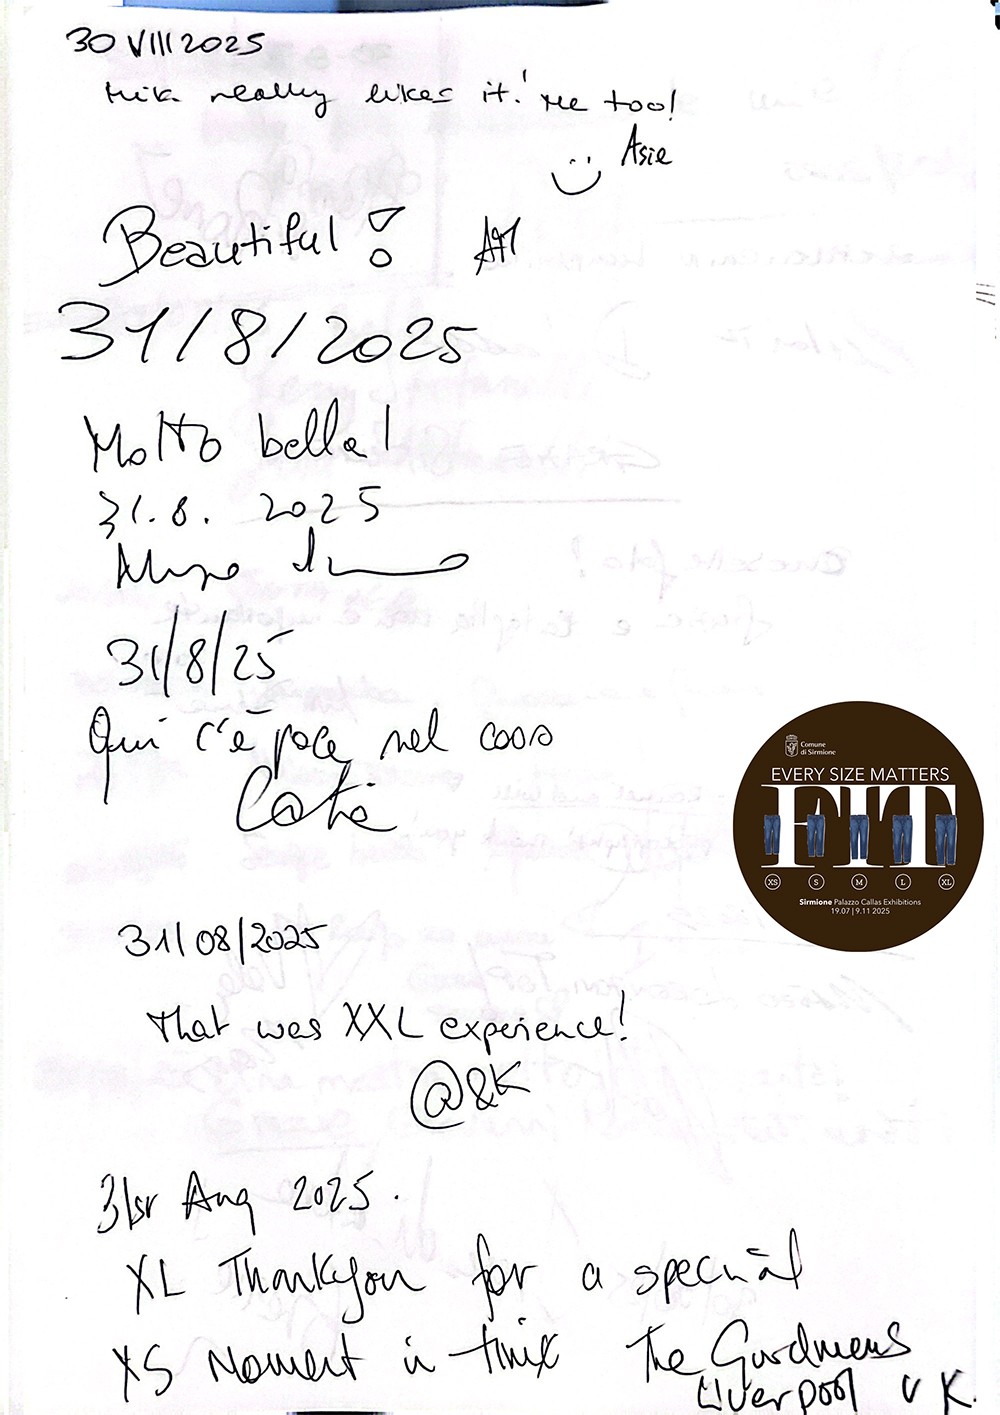 30 VIII 2025
really likes it! me too!
Asie
Beautiful!
31/8/2025
Molto bella!
31.8. 2025
31/8/25
Qui c'è pace nel caos
Catia
31/08/2025
That was XXL experience!
@&K
31st Aug 2025.
XL Thankyou for a special
XS Moment in time The
Liverpool UK.
Comune
di Sirmione
EVERY SIZE MATTERS
FIT
XS S M L XL
Sirmione Palazzo Callas Exhibitions
19.07 | 9.11 2025